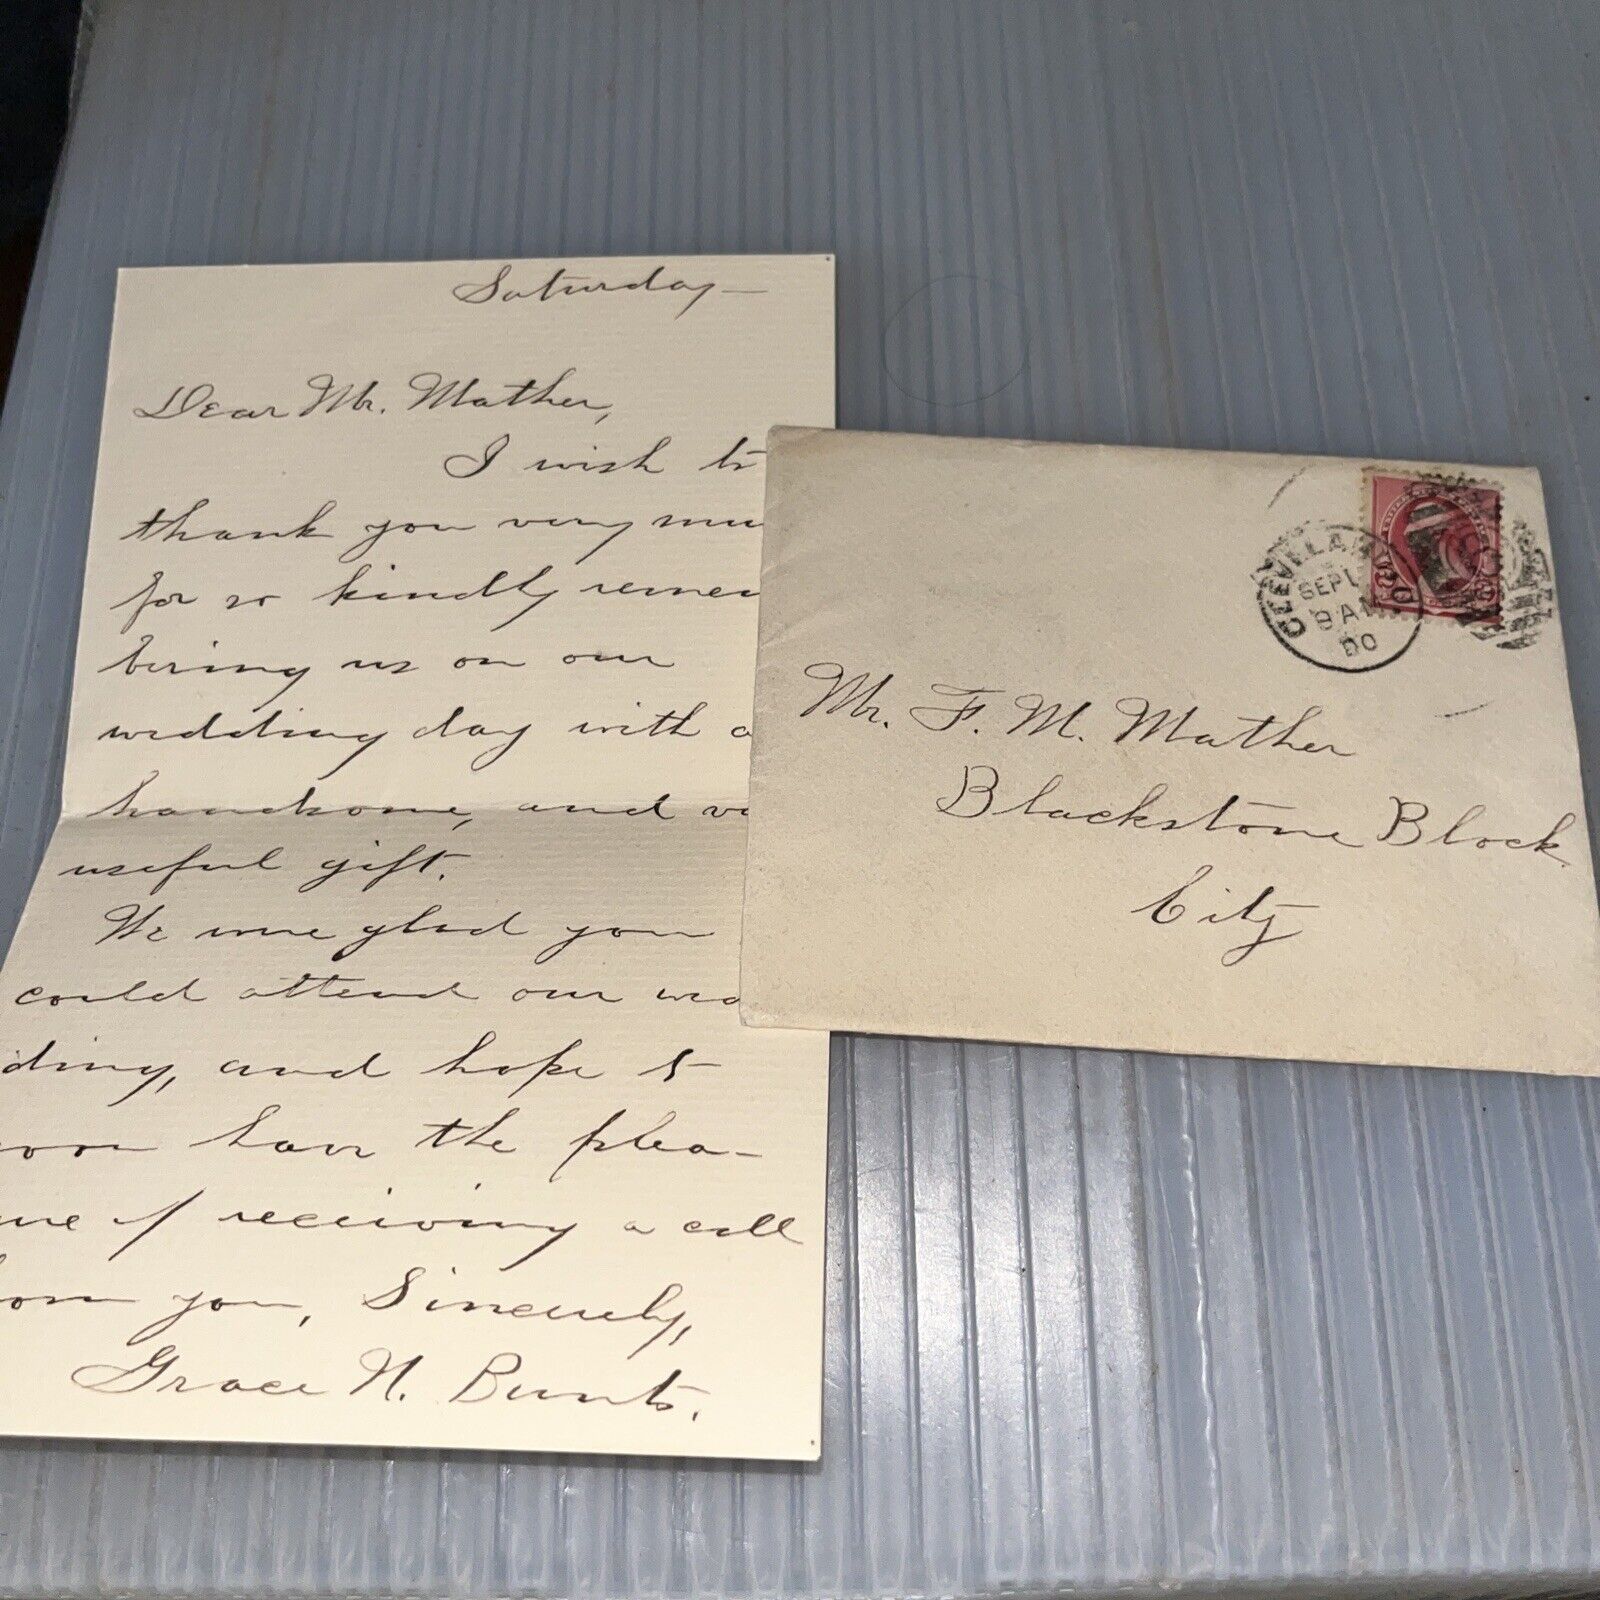 Saturday—
Dear Mr. Mather,
I wish to
thank you very mu
for so kindly remem
bering us on our
wedding day with a
handsome, and v
useful gift.
We were glad you
could attend our wed
ding, and hope to
soon have the plea-
ure of receiving a call
from you, Sincerely,
Grace H. Bunts.
CLEVELAND, O
SEP
9 AM
00
Mr. F. M. Mather
Blackstone Block
City